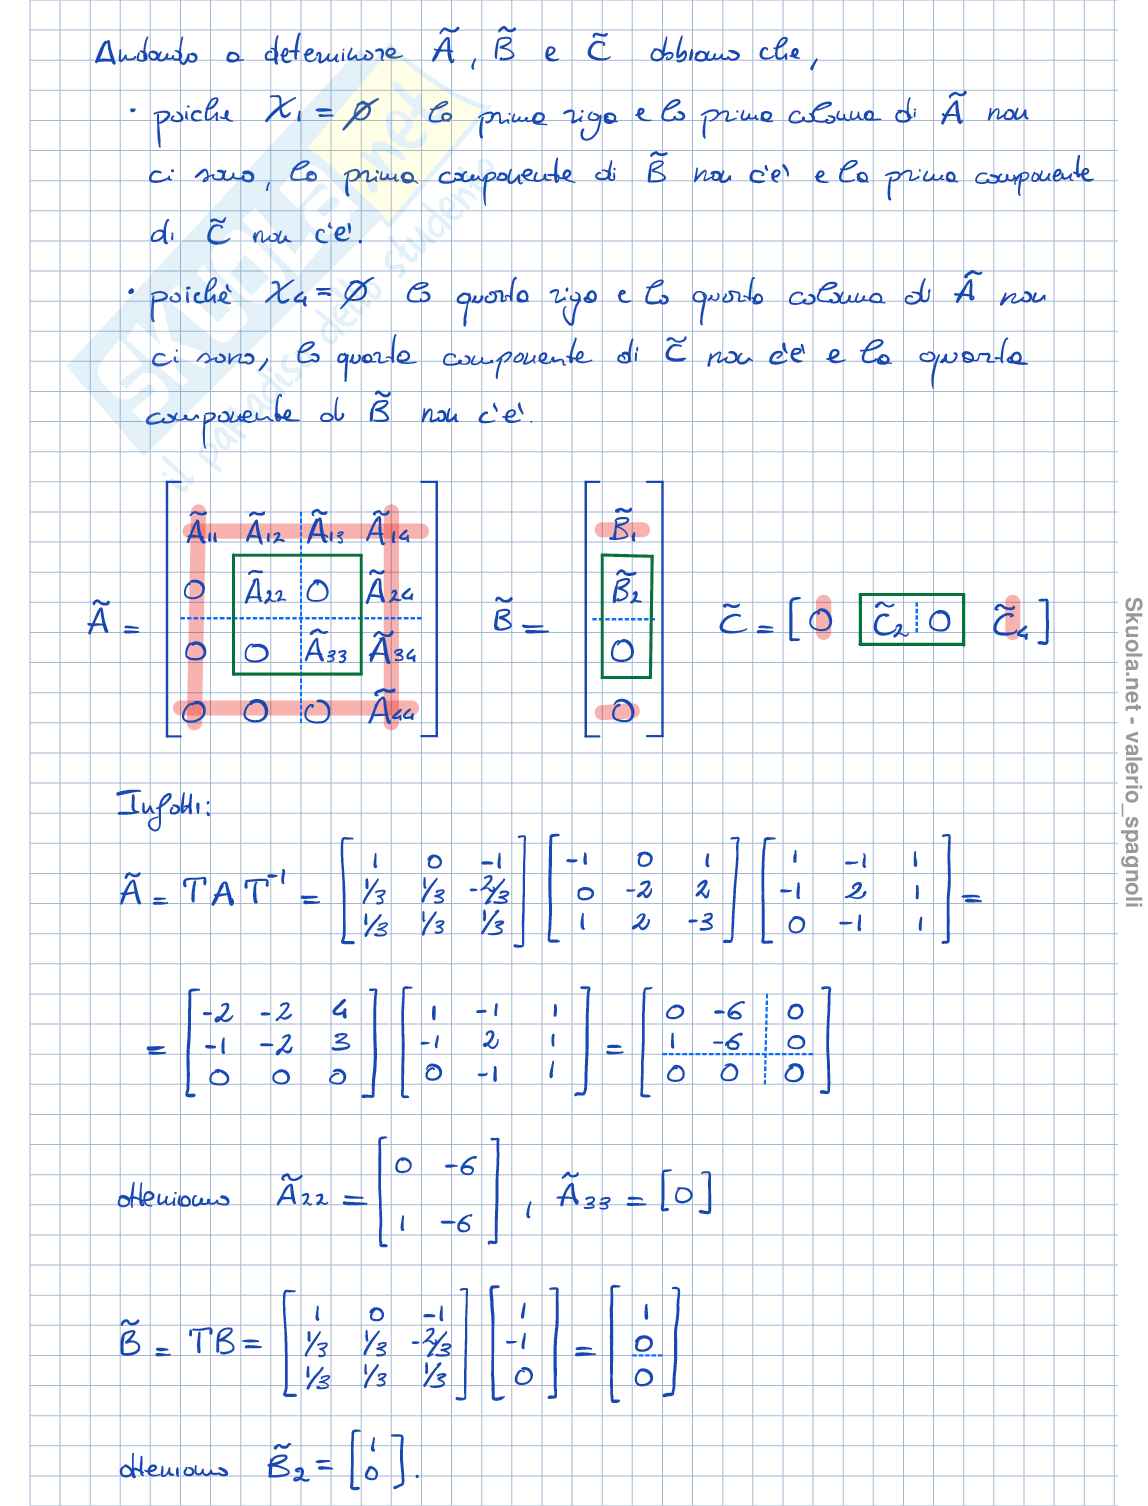 Andando a determinare Ã, B̃ e C̃ dobbiamo che,
• poiche X₁ = ∅ la prima riga e la prima colonna di Ã non
ci sono, la prima componente di B̃ non c'e' e la prima componente
di C̃ non c'e'.
• poichè X₄ = ∅ la quarta riga e la quarta colonna di Ã non
ci sono, la quarta componente di C̃ non c'e' e la quarta
componente di B̃ non c'e'.
Ã = [ Ã₁₁ Ã₁₂ Ã₁₃ Ã₁₄ ; 0 Ã₂₂ 0 Ã₂₄ ; 0 0 Ã₃₃ Ã₃₄ ; 0 0 0 Ã₄₄ ] B̃ = [ B̃₁ ; B̃₂ ; 0 ; 0 ] C̃ = [ 0 C̃₂ 0 C̃₄ ]
Infatti:
Ã = T A T⁻¹ = [ 1 0 -1 ; 1/3 1/3 -2/3 ; 1/3 1/3 1/3 ] [ -1 0 1 ; 0 -2 2 ; 1 2 -3 ] [ 1 -1 1 ; -1 2 1 ; 0 -1 1 ] =
= [ -2 -2 4 ; -1 -2 3 ; 0 0 0 ] [ 1 -1 1 ; -1 2 1 ; 0 -1 1 ] = [ 0 -6 0 ; 1 -6 0 ; 0 0 0 ]
otteniamo Ã₂₂ = [ 0 -6 ; 1 -6 ] , Ã₃₃ = [0]
B̃ = TB = [ 1 0 -1 ; 1/3 1/3 -2/3 ; 1/3 1/3 1/3 ] [ 1 ; -1 ; 0 ] = [ 1 ; 0 ; 0 ]
otteniamo B̃₂ = [ 1 ; 0 ].
Skuola.net - valerio_spagnoli
SKUOLA.net
il paradiso dello studente